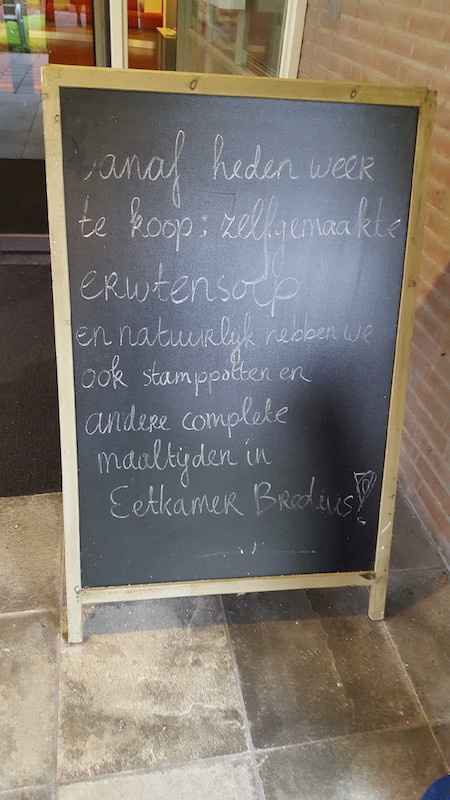 Vanaf heden weer
te koop: zelfgemaakte
erwtensoep
en natuurlijk hebben we
ook stamppotten en
andere complete
maaltijden in
Eetkamer Bredius!